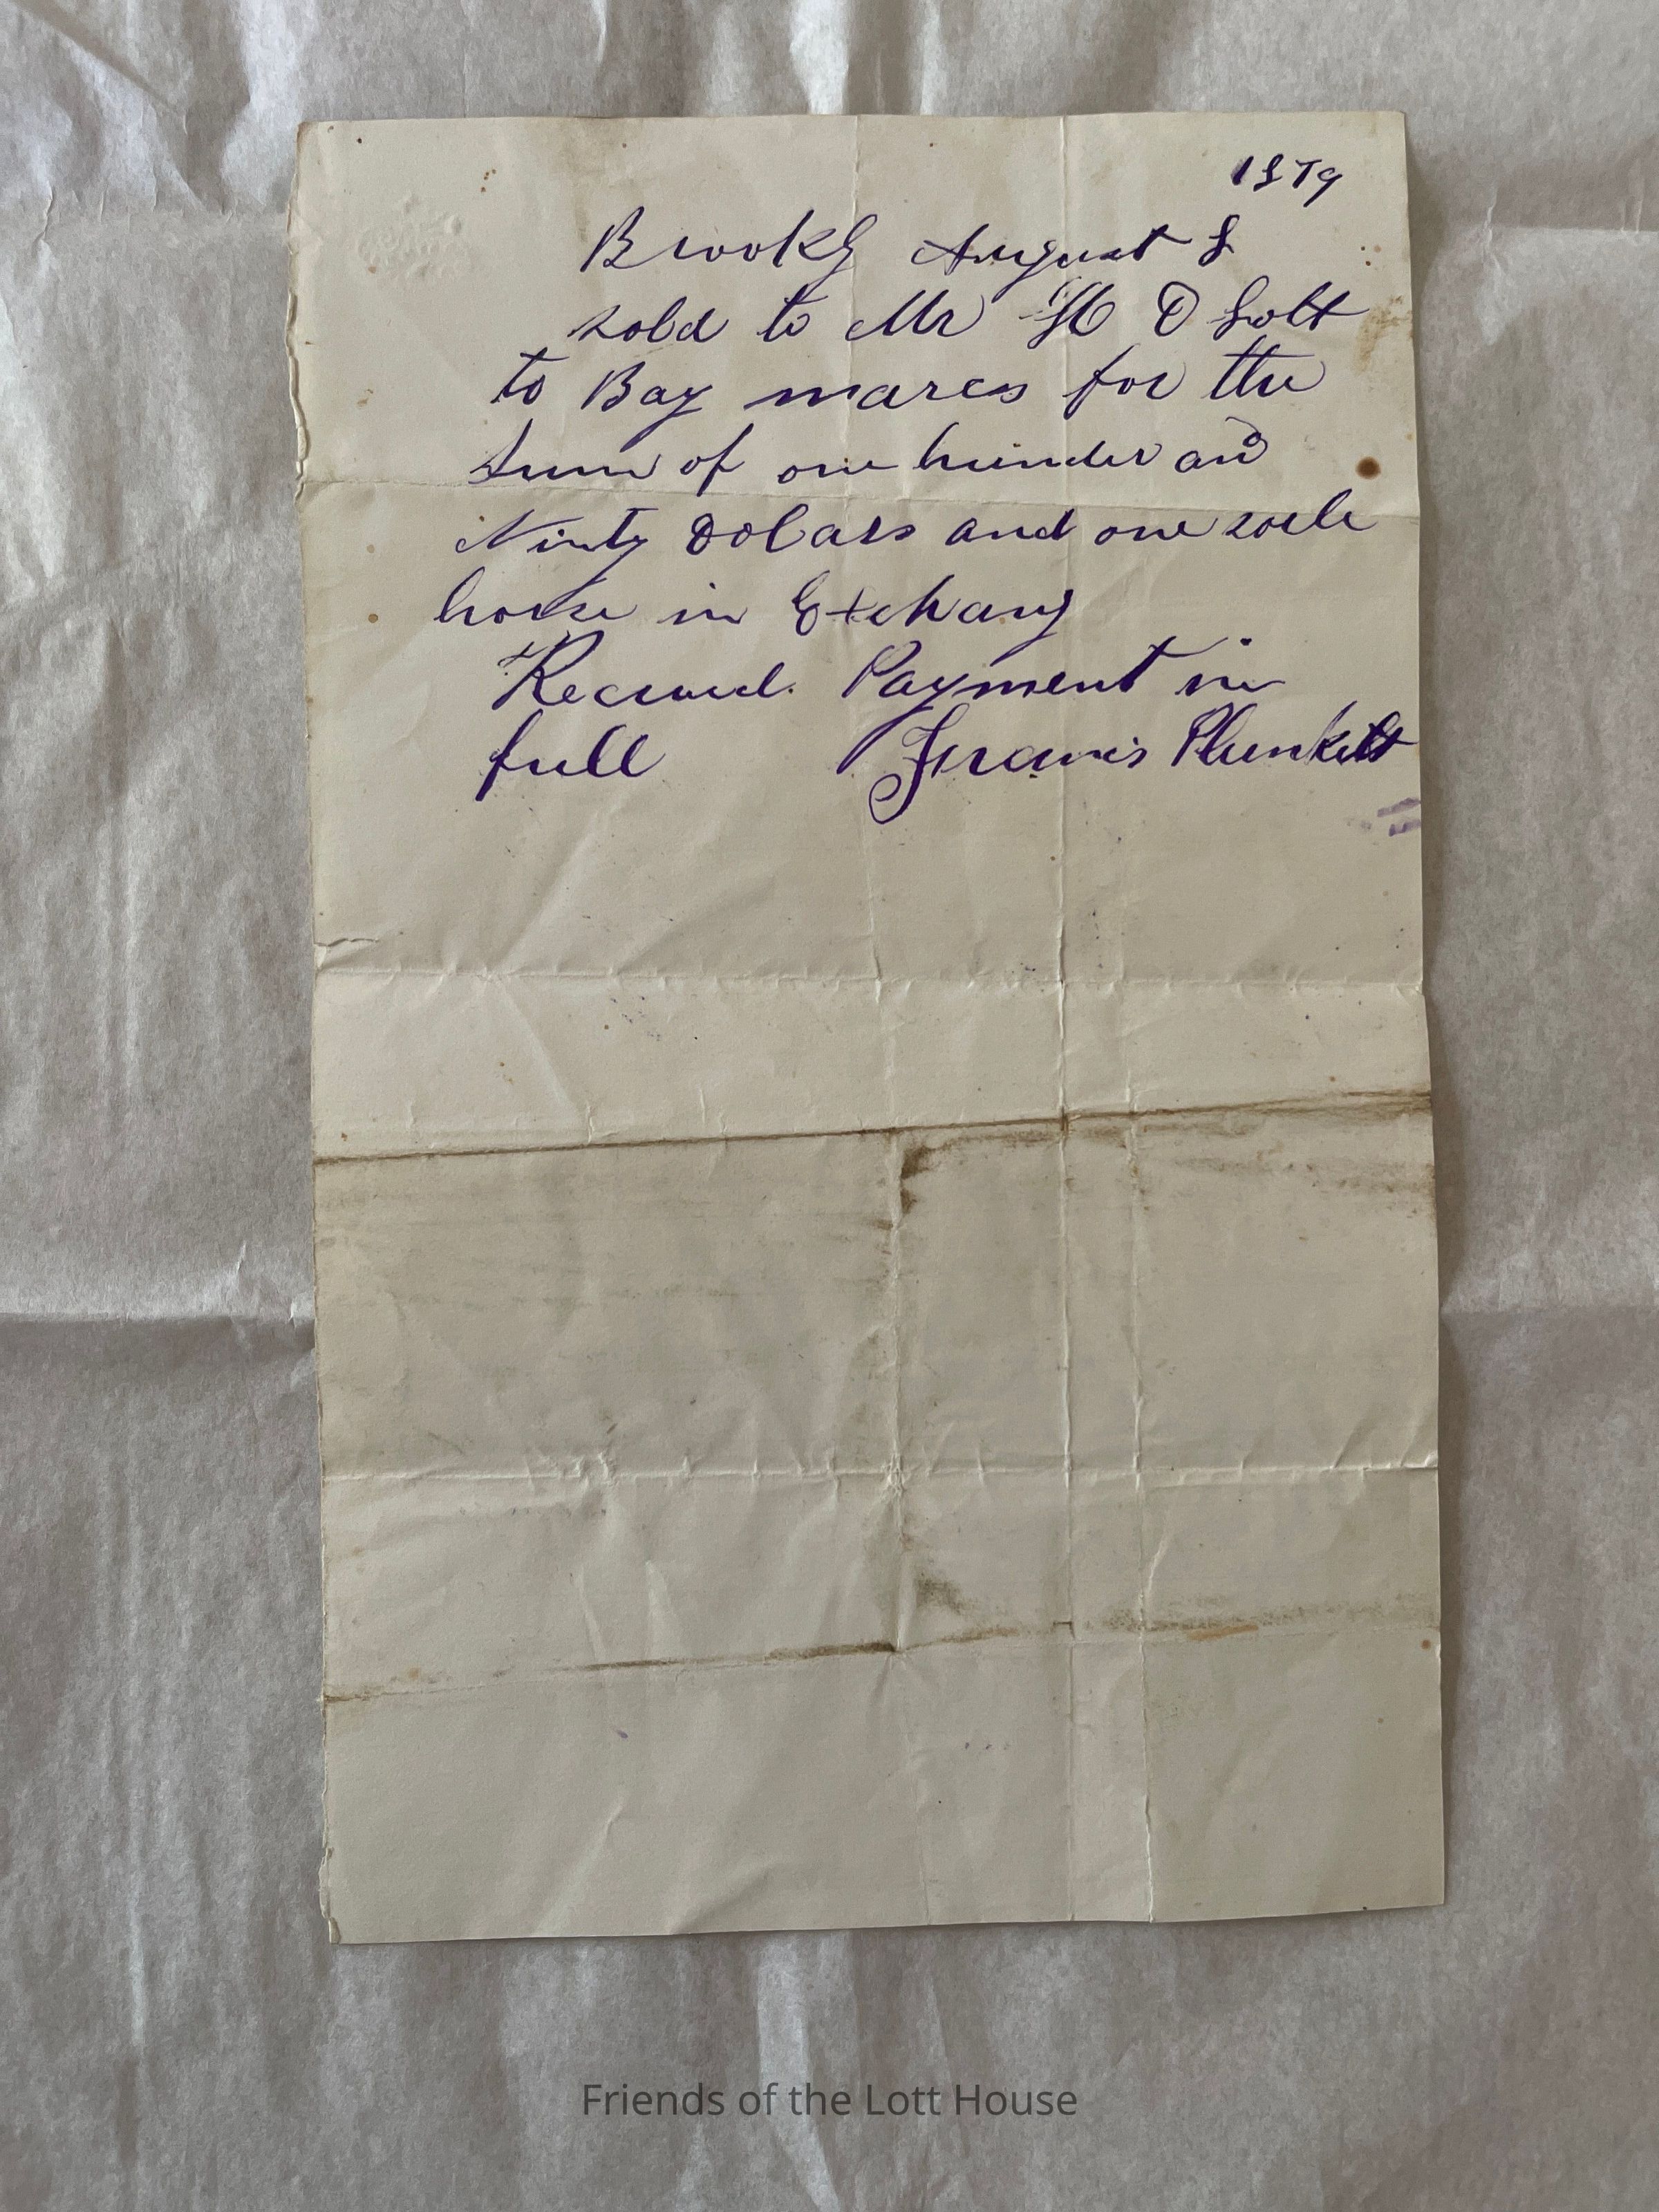 1879
Brookly August 8
sold to Mr H D Lott
to Bay mares for the
sum of one hunder and
Ninty Dollars and one
horse in Exchang
Received Payment in
full Francis Plunkett
Friends of the Lott House